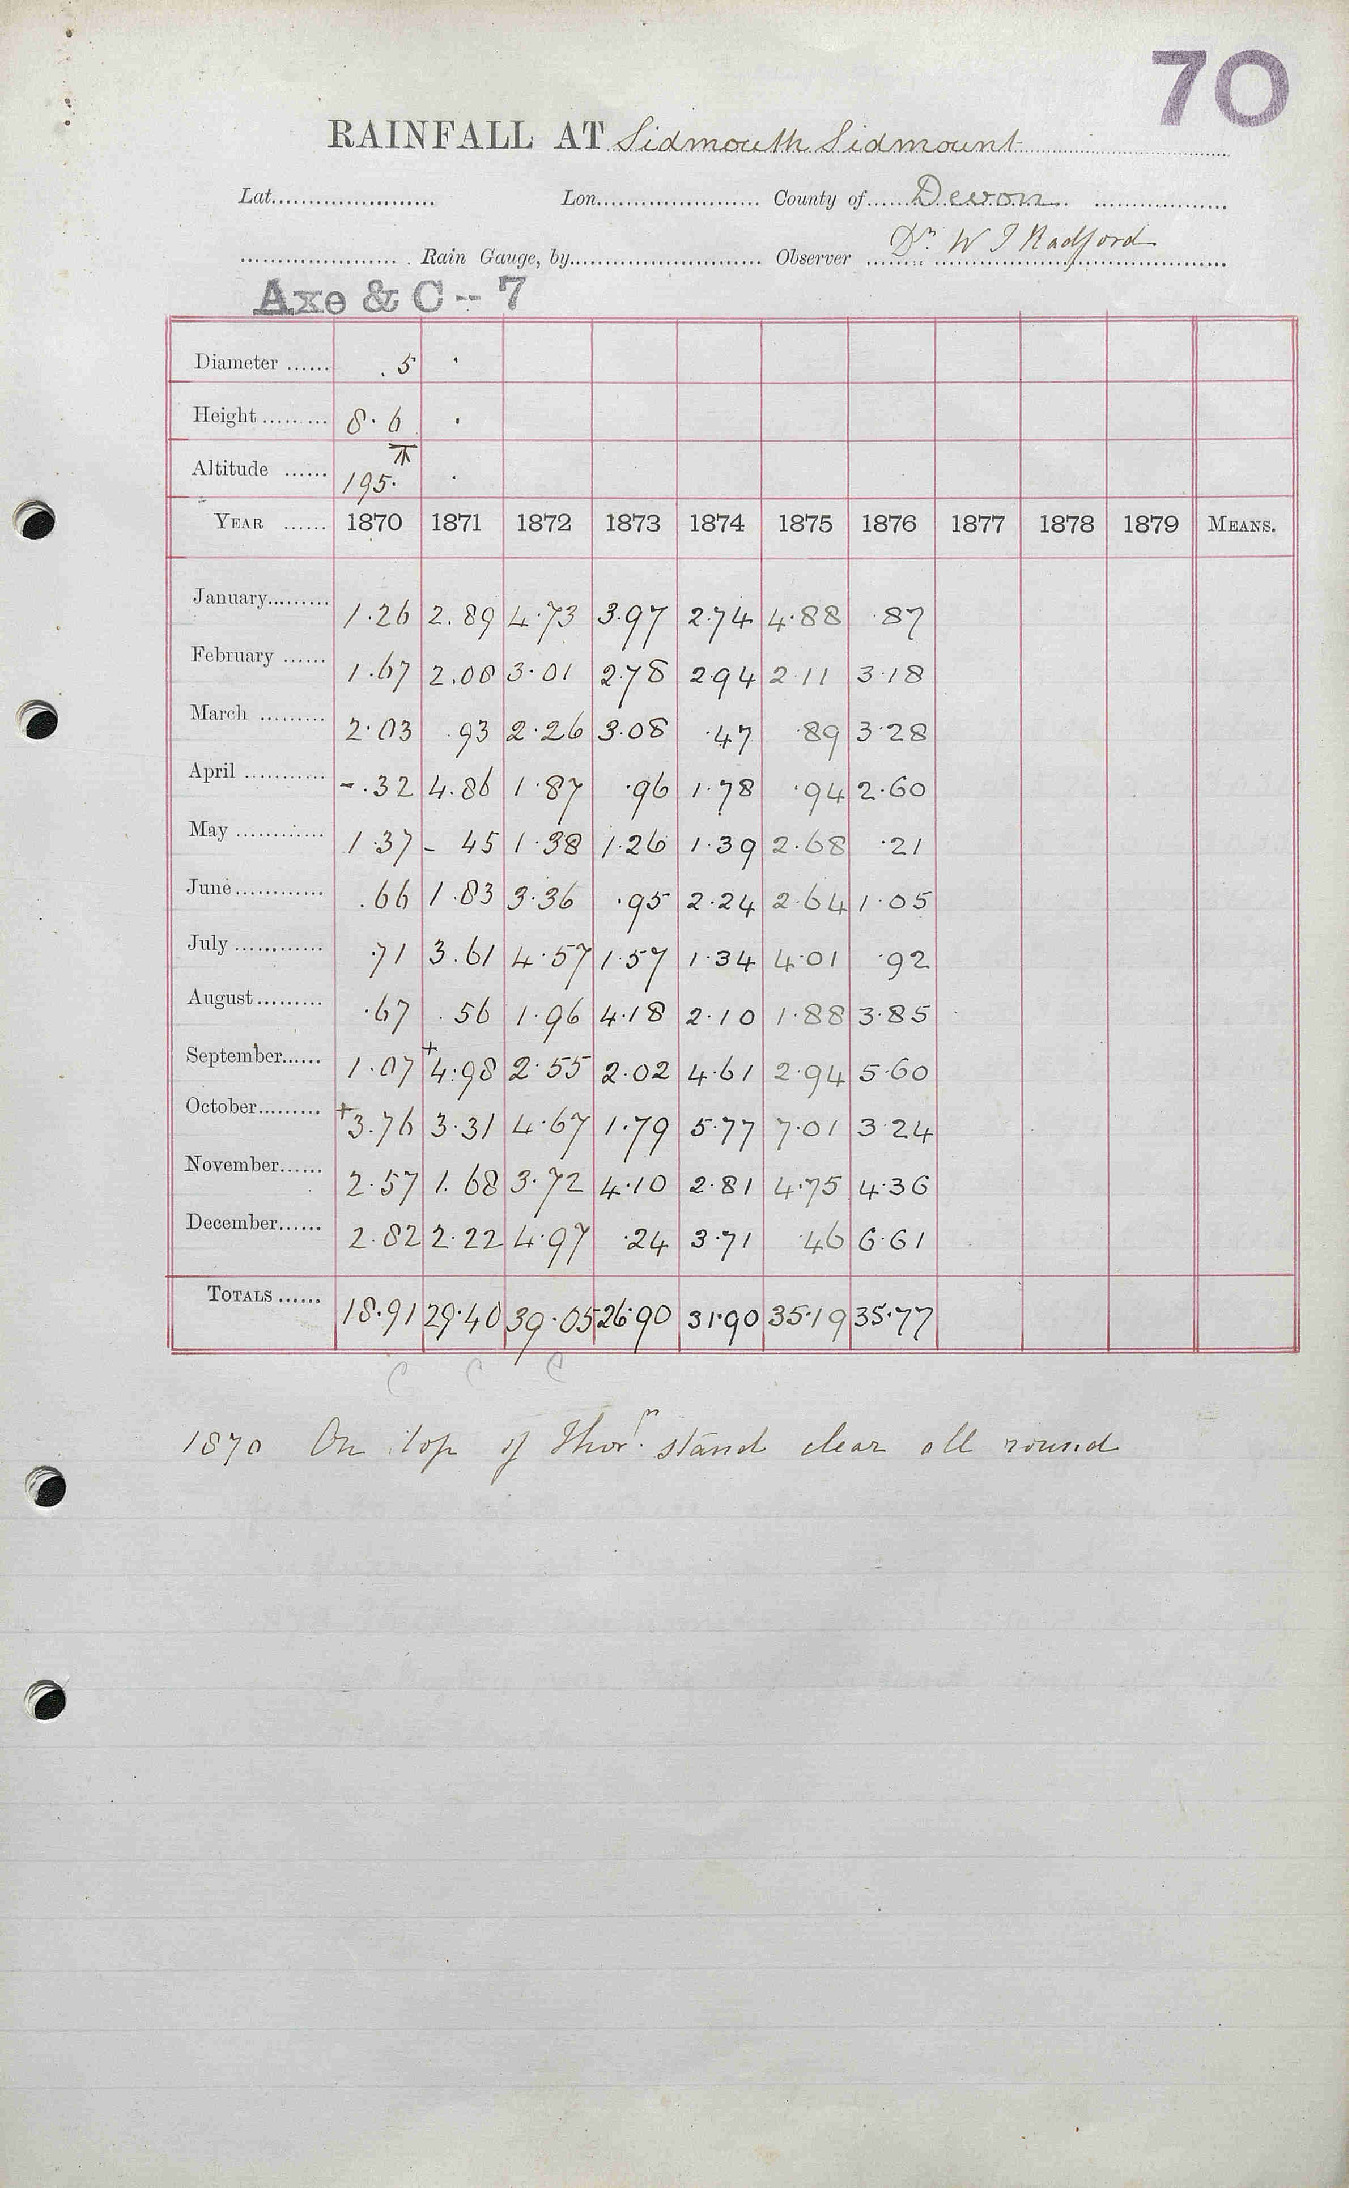 70
RAINFALL AT Sidmouth Sidmount
Lat...................... Lon....................... County of......Devon...
..................... Rain Gauge, by........................... Observer Dr. W T Radford
Axe & C -- 7
Diameter ...... .5 ·
Height ......... 8·6 ·
Altitude ...... 195· ·
YEAR ...... 1870 1871 1872 1873 1874 1875 1876 1877 1878 1879 MEANS.
January......... 1·26 2.89 4·73 3·97 2·74 4·88 ·87
February ...... 1.67 2.08 3·01 2·78 2·94 2·11 3·18
March ......... 2·03 .93 2·26 3·08 ·47 ·89 3·28
April ........... -.32 4.86 1·87 ·96 1·78 ·94 2·60
May ............. 1·37 - 45 1·38 1·26 1·39 2·68 ·21
June............ .66 1.83 3·36 ·95 2·24 2·64 1·05
July ............ ·71 3.61 4·57 1·57 1·34 4·01 ·92
August......... ·67 .56 1·96 4·18 2·10 1·88 3·85
September...... 1·07 +4·98 2·55 2·02 4·61 2·94 5·60
October......... +3.76 3·31 4·67 1·79 5·77 7·01 3·24
November...... 2·57 1.68 3·72 4·10 2·81 4·75 4·36
December...... 2·82 2·22 4·97 ·24 3·71 ·46 6·61
TOTALS ...... 18·91 29·40 39·05 26·90 31·90 35·19 35·77
C C C
1870 On top of Thorm. stand clear all round